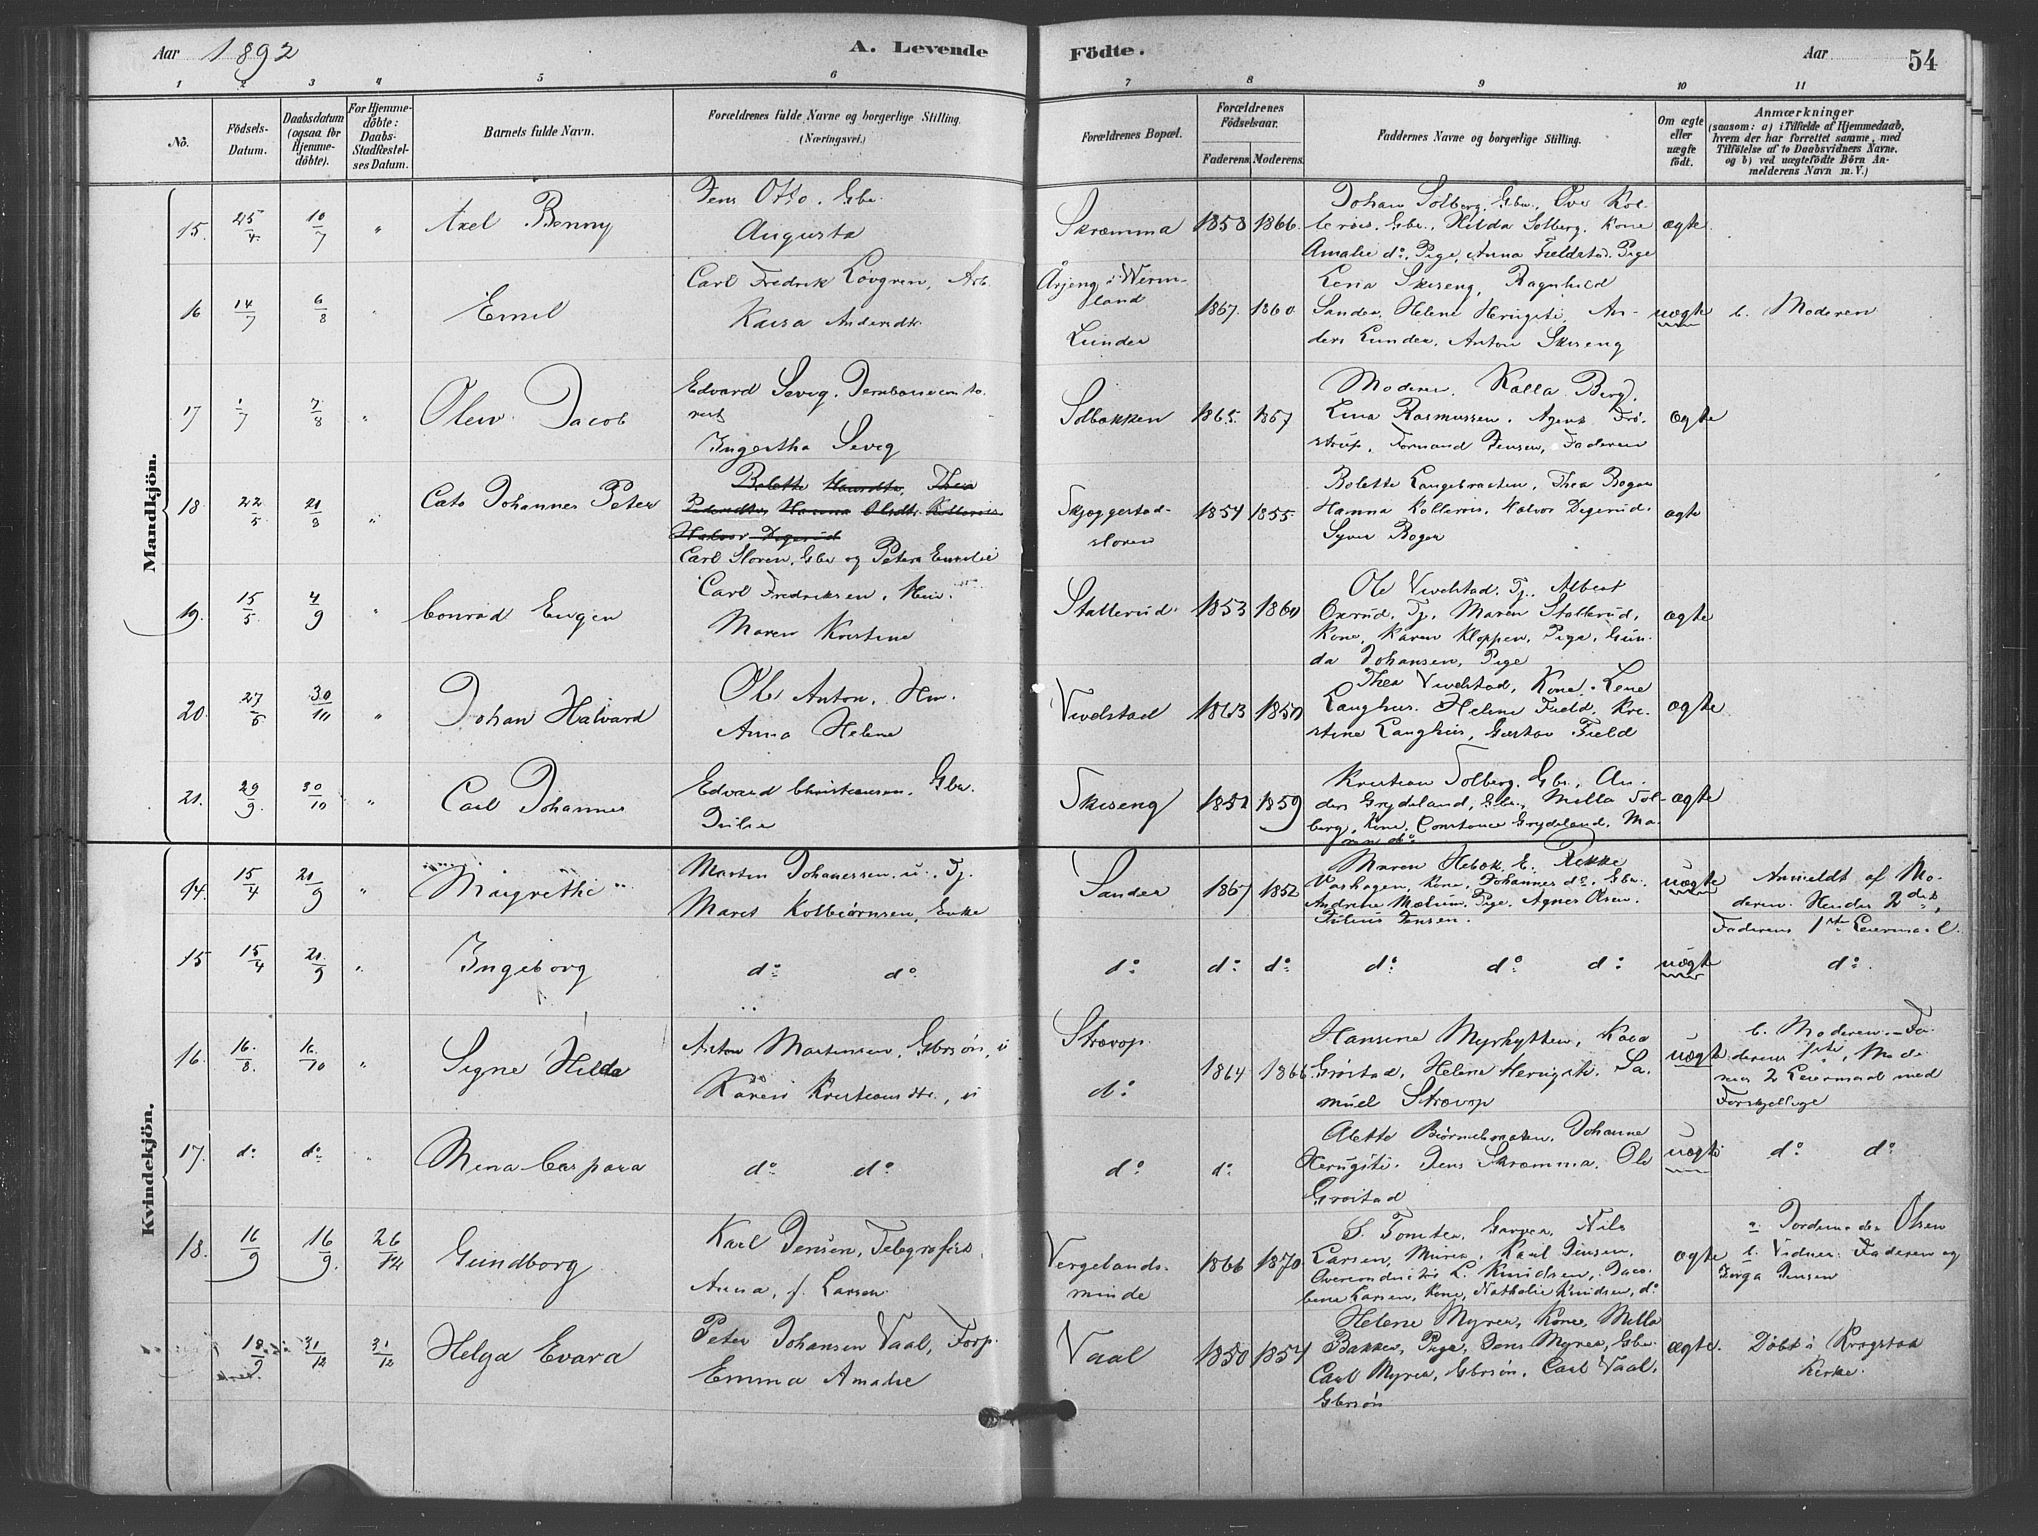 Aar 1892
A. Levende
Födte.
Aar
54
1 2 3 4 5 6 7 8 9 10 11
No.
Födsels-Datum.
Daabsdatum (ogsaa for Hjemme-döbte).
For Hjemme-döbte: Daabs-Stadfæstel-ses Datum.
Barnets fulde Navn.
Forældrenes fulde Navne og borgerlige Stilling. (Næringsvei.)
Forældrenes Bopæl.
Forældrenes Födselsaar.
Faderens. Moderens.
Faddernes Navne og borgerlige Stilling.
Om ægte eller uægte födt.
Anmærkninger
(saasom: a) i Tilfælde af Hjemmedaab, hvem der har forrettet samme, med Tilföielse af to Daabsvidners Navne, og b) ved uægtefödte Börn An-melderens Navn m. V.)
Mandkjön.
15. 25/4. 10/7 " Axel Benny
Jens Otto. Gbr.
Augusta
Skræmma 1858 1866.
Johan Solberg, Gbr., Over Kol-
Gbr., Hilda Solberg, Kone
Amalie do, Pige, Anna Fieldstad, Pige
ægte
16 14/7 6/8 " Emil
Carl Fredrik Løvgren, Arb.
Kaisa Andersdtr.
Årjeng i Werm-
land
Lunder
1867. 1860
Lena Skiseng, Ragnhild
Sander, Helene Herugsti, An-
ders Lunder, Anton Skiseng
uægte
b. Moderen
17 1/7 7/8 " Olew Jacob
Edvard Seveg,
Ingertha Seveg
Solbakken 1865. 1867
Moderen, Kalla Berg,
Lina Rasmussen, Agens Frö-
strup, Fornand Jensen, Faderen
ægte
18 22/5. 21/8 " Cato Johannes Peter
Bolette
Halvor Degerud
Carl Storen, Gbr og Petra Emilie
Skjeggestad-
storen
1854 1855.
Bolette Langebraaten, Thea Boger
Hanna Kolleris, Halvor Degerud.
Syver Boger
ægte
19. 15/5. 4/9 " Conrad Eugen
Carl Fredriksen, Hm.
Maren Kristine
Stallerud. 1853 1860
Ole Vivelstad, Tj., Albert
Oxrud, Tj, Maren Stallerud,
Kone, Karen Kloppen, Pige, Gun-
da Johansen, Pige
ægte
20. 27/6 30/10 " Johan Halvard
Ole Anton, Hm.
Anna Helene
Vivelstad 1863 1850
Thea Vivelstad, Kone. Lene
Langhus. Helene Field, Kri-
stine Langhus, Gustav Field
ægte
21. 29/9. 30/10 " Carl Johannes
Edvard Christiansen. Gbr.
Julie
Skiseng 1852 1859
Kristian Solberg. Gbr., An-
ders Grydeland, Gbr., Milla Sol-
berg, Kone, Constance Grydeland, Ma-
do
ægte
Kvindekjön.
14. 15/4 21/9 " Margrethe
Martin Johanessen, u., Tj.
Maret Kolbiørnsen, Enke
Sander 1867 1852
Maren Hebæk, E. Rekke
Vashagen, Kone, Johannes do, Gbr.
Andrine Mælum, Pige, Agnes Olsen,
Julius Jensen.
uægte
Anmeldt af Mo-
deren. Hendes 2det,
Faderens 1ste Leiermaal.
15 15/4 21/9 " Ingeborg
do do
do do do do do do
uægte
do.
16. 16/8. 16/10 " Signe Hilda
Anton Martinsen, Gbrsøn, u
Karen Kristiansdtr., u
Strøvop.
do
1864 1866
Hansene Myrhytten, Kaia
Grøstad, Helene Herugsti. Sa-
muel Strøvop
uægte
b. Moderen. - Fa-
derens 1ste, Mode
rens 2 Leiermaal med
Forskjellige
17. do do " Mina Caspara
do do
do do
Alette Biørnebraaten, Johanne
Herugsti. Jens Skræmma. Ole
Grøstad
uægte
do do
18. 16/9 16/9. 26/12 Gundborg
Karl Jensen, Telegrafist.
Anna, f. Larsen
Vergelands-
minde
1866 1870.
S. Tomter, Garver, Nils
Larsen, Murer, Karl Jensen,
Overconduktör L. Knudsen, Jaco-
bine Larsen, Kone, Nathalie Knudsen, do
ægte
a. Jordemoder Olsen
b. Vidner: Faderen og
Jensen
18/9 31/12 31/12 Helga Evara
Peter Johansen Vaal, Forp.
Emma Amalie
Vaal 1850 1854
Helene Myrer, Kone, Milla
Bakken, Pige, Jens Myrer, Gbr.
Carl Myrer, Gbrsøn, Carl Vaal,
Gbrsøn
ægte.
Døbt i Kragstad
Kirke.